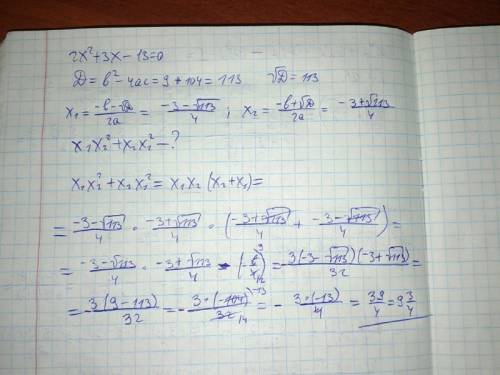 2x²+3x-13=0
D=b²-4ac=9+104=113 √D=113
x₁=(-b-√D)/2a=(-3-√113)/4; x₂=(-b+√D)/2a=(-3+√113)/4
x₁x₂²+x₂x₁²-?
x₁x₂²+x₂x₁²=x₁x₂(x₂+x₁)=
=(-3-√113)/4·(-3+√113)/4·((-3+√113)/4+(-3-√113)/4)=
=(-3-√113)/4·(-3+√113)/4·(-6³/4₂)=-3(-3-√113)(-3+√113)/32=
=-3(9-113)/32=-3·(-104)⁻¹³/32₄=-3·(-13)/4=39/4=9 3/4